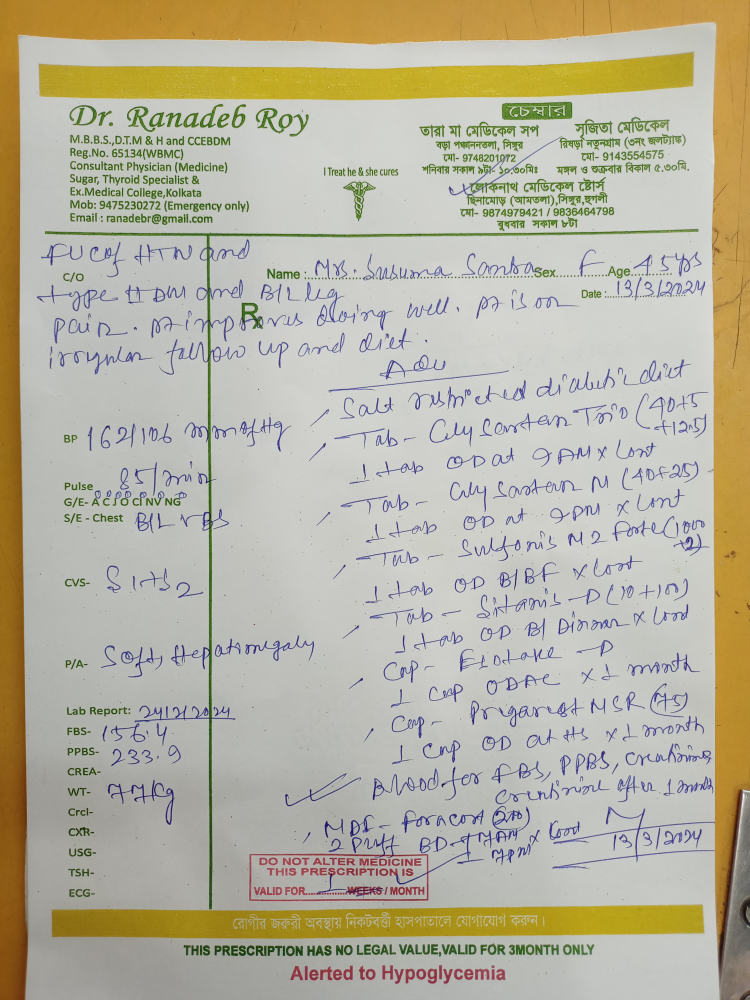 Dr. Ranadeb Roy
M.B.B.S.,D.T.M & H and CCEBDM
Reg.No. 65134(WBMC)
Consultant Physician (Medicine)
Sugar, Thyroid Specialist &
Ex.Medical College,Kolkata
Mob: 9475230272 (Emergency only)
Email : ranadebr@gmail.com
I Treat he & she cures
চেম্বার
তারা মা মেডিকেল সপ
বড়া পঞ্চাননতলা, সিঙ্গুর
মো- 9748201072
শনিবার সকাল ৯টা- ১০.৩০মিঃ
সৃজিতা মেডিকেল
রিষড়া নতুনগ্রাম (৩নং জলট্যাঙ্ক)
মো- 9143554575
মঙ্গল ও শুক্রবার বিকাল ৫.৩০মি.
লোকনাথ মেডিকেল ষ্টোর্স
ছিনামোড় (আমতলা),সিঙ্গুর,হুগলী
মো- 9874979421 / 9836464798
বুধবার সকাল ৮টা
FUC of HTN and
C/O
Type II DM and B/L leg
pain. pt improves doing well. pt is on
irregular follow up and diet.
Name : Mrs. Susuma Samba Sex F Age 45 yrs
Date : 13/3/2024
Rx
Adv
Salt restricted diabetic diet
Tab - Cily Sartan Trio (40+5
+12.5)
1 tab OD at 9 AM x Cont
Tab - Cily Sartan M (40+25)
1 tab OD at 9 PM x Cont
Tab - Sulfonis M2 Forte (1000
+2)
1 tab OD B/BF x Cont
Tab - Sitanis - D (10+100)
1 tab OD B/ Dinner x Cont
Cap - - D
1 Cap ODAC x 1 month
Cap - MSR (75)
1 Cap OD at HS x 1 month
Blood for FBS, PPBS, Creatinine
Creatinine after 1 month
MDI - Foracort (200)
2 Puff BD - 7 AM x Cont
7 PM
13/3/2024
BP 162/106 mm of Hg
Pulse 85/min
G/E- A C J O CI NV NG
S/E - Chest B/L VBS
CVS- S1+S2
P/A- Soft, Hepatomegaly
Lab Report: 24/2/2024
FBS- 156.4
PPBS- 233.9
CREA-
WT- 77 Kg
Crcl-
CXR-
USG-
TSH-
ECG-
DO NOT ALTER MEDICINE
THIS PRESCRIPTION IS
VALID FOR 1 WEEKS / MONTH
রোগীর জরুরী অবস্থায় নিকটবর্ত্তী হাসপাতালে যোগাযোগ করুন।
THIS PRESCRIPTION HAS NO LEGAL VALUE,VALID FOR 3MONTH ONLY
Alerted to Hypoglycemia